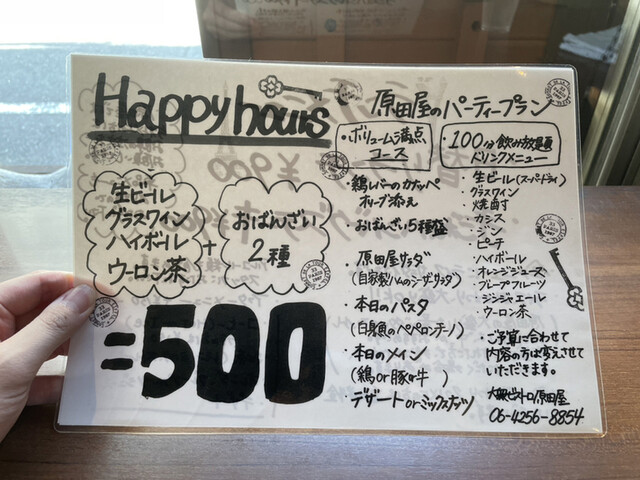 Happy hours
生ビール
グラスワイン
ハイボール
ウーロン茶
+
おばんざい
2種
=500
原田屋のパーティープラン
・ボリューム満点
コース
・鶏レバーのカナッペ
オリーブ添え
・おばんざい5種盛
・原田屋サラダ
(自家製ハムのシーザーサラダ)
・本日のパスタ
(白身魚のペペロンチーノ)
・本日のメイン
(鶏or豚or牛)
・デザートorミックスナッツ
100分飲み放題
ドリンクメニュー
・生ビール(スーパードライ)
・グラスワイン
・焼酎
・カシス
・ジン
・ピーチ
・ハイボール
・オレンジジュース
・グレープフルーツ
・ジンジャエール
・ウーロン茶
・ご予算に合わせて
内容の方は変えさせて
いただきます。
大衆ビストロ原田屋
06-4256-8854